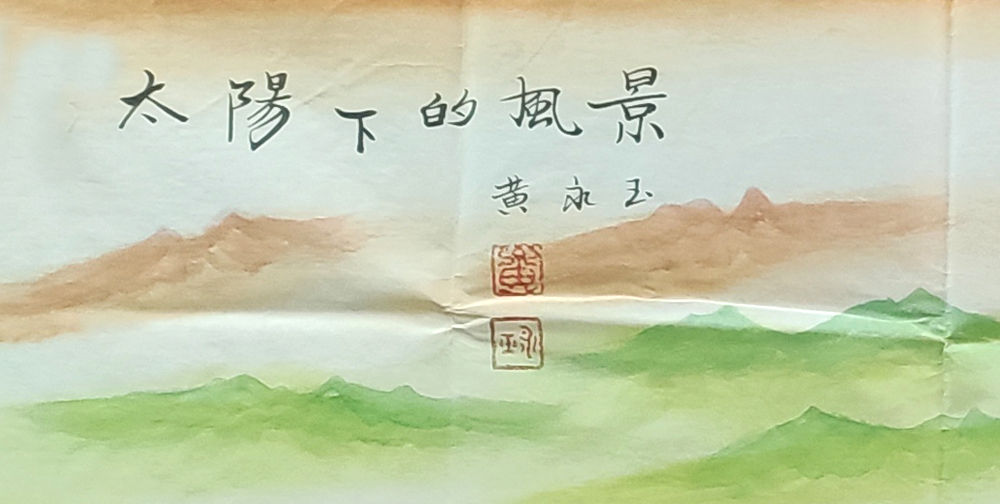 太陽下的風景
黄永玉
黄
永玉